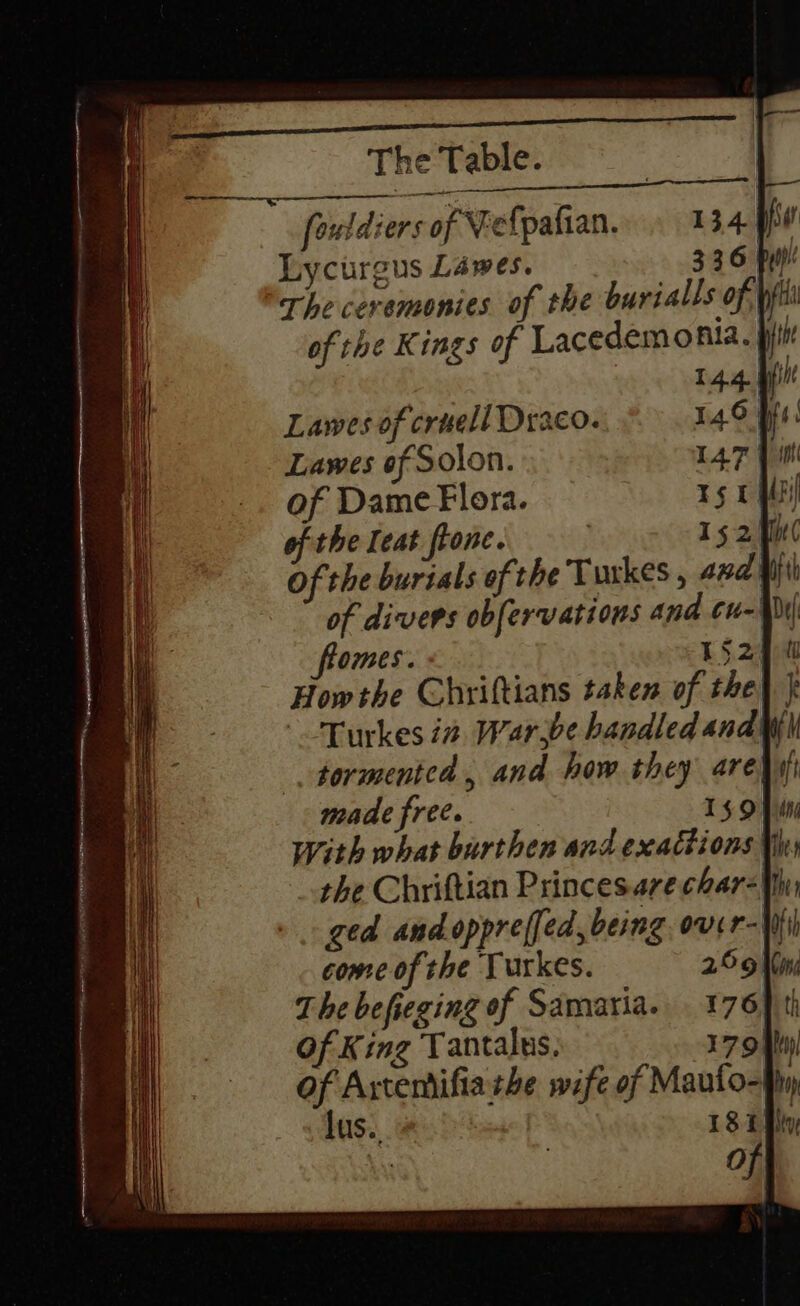 The Table.
ſouldiers of Veſpaſian. 134
Lycurgus Lawes. 336
The ceremonies of the burialls of
of the Kings of Lacedemonia.
144
Lawes of cruell Draco. 146
Lawes of Solon. 147
Of Dame Flora. 151
of the leat ſtone. 152
Of the burials of the Turkes, and
of divers obſervations and cu-
ſtomes. 152
How the Chriſtians taken of the
Turkes in War, be handled and
tormented, and how they are
made free. 159
With what burthen and exactions
the Chriſtian Princes are char-
ged and oppreſſed, being over-
come of the Turkes. 269
The beſieging of Samaria. 176
Of King Tantalus. 179
Of Artemiſia the wife of Mauſo-
lus. 181
Of